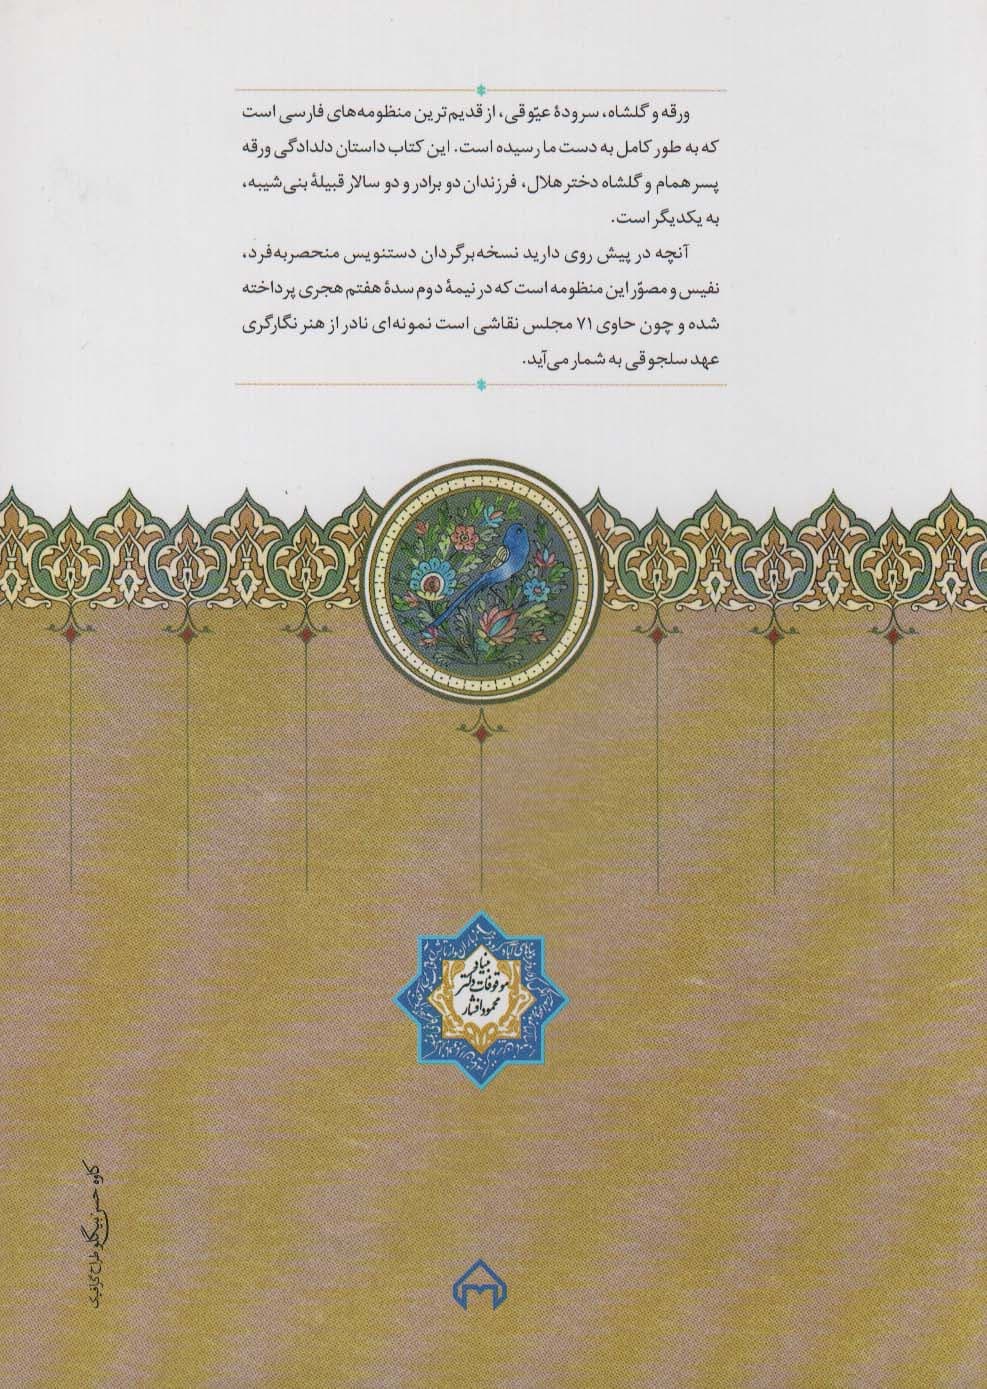 ورقه و گلشاه، سرودهٔ عیّوقی، از قدیم‌ترین منظومه‌های فارسی است
که به طور کامل به دست ما رسیده است. این کتاب داستان دلدادگی ورقه
پسر همام و گلشاه دختر هلال، فرزندان دو برادر و دو سالار قبیلهٔ بنی‌شیبه،
به یکدیگر است.
آنچه در پیش روی دارید نسخه‌برگردان دستنویس منحصربه‌فرد،
نفیس و مصوّر این منظومه است که در نیمهٔ دوم سدهٔ هفتم هجری پرداخته
شده و چون حاوی ۷۱ مجلس نقاشی است نمونه‌ای نادر از هنر نگارگری
عهد سلجوقی به شمار می‌آید.
بنیاد
موقوفات دکتر
محمود افشار
کاوه حسن بیگلو طراح گرافیک